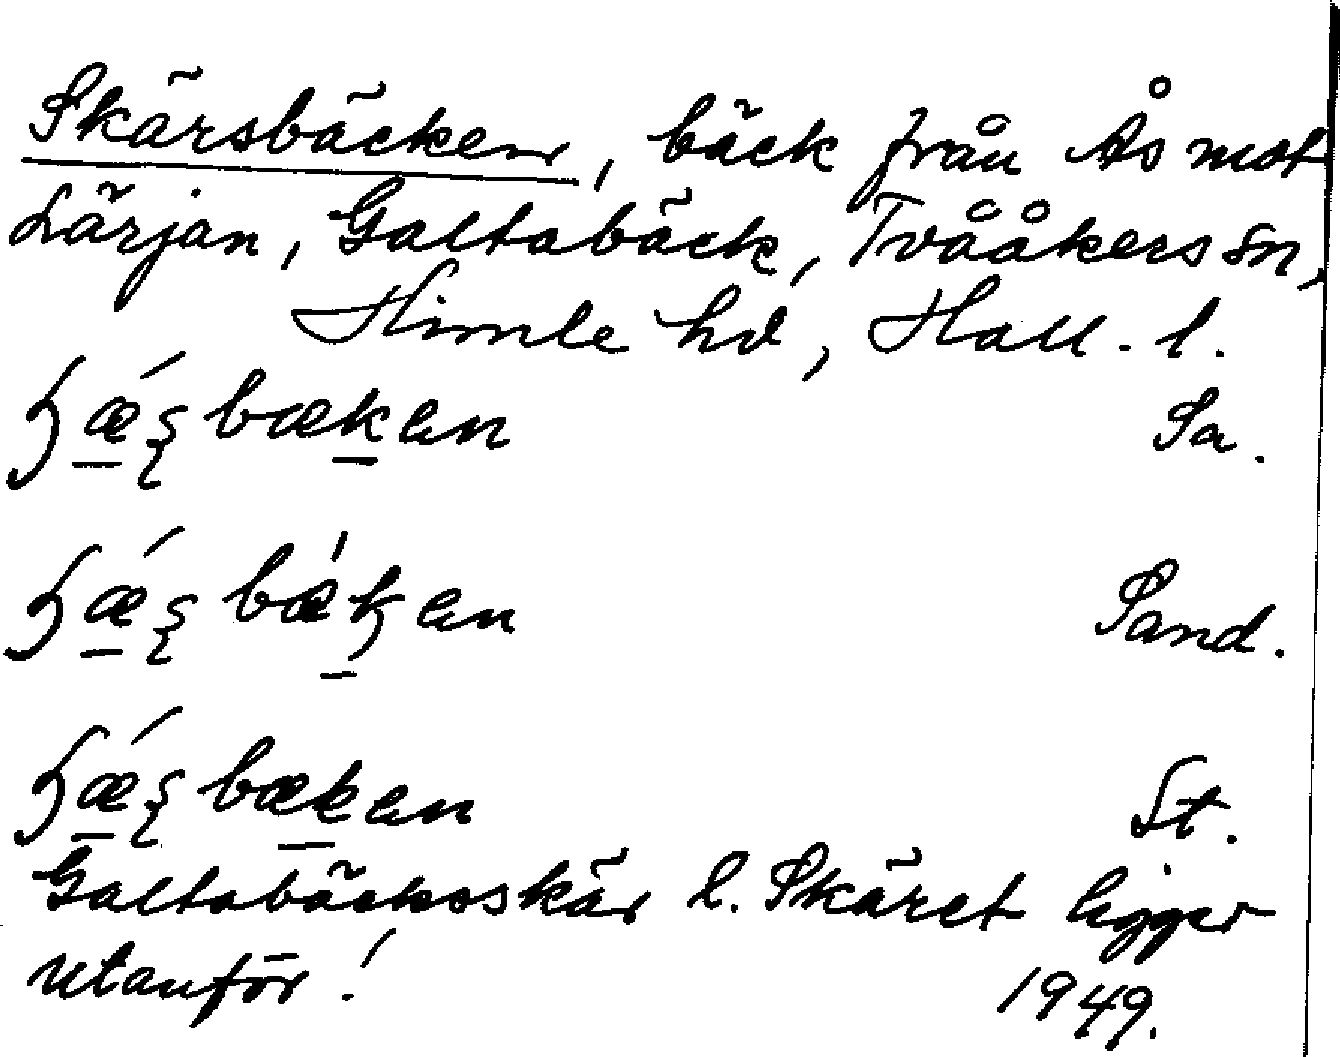 Skärsbäcken, bäck från Ås mot
Lärjan, Galtabäck, Tvååkers sn,
Himle hd, Hall. l.
ɧǽʂbæken Sa.
ɧǽʂbæ̍ken Sand.
ɧǽʂbæken St.
Galtabäcksskär l. Skäret ligger
utanför!
1949.